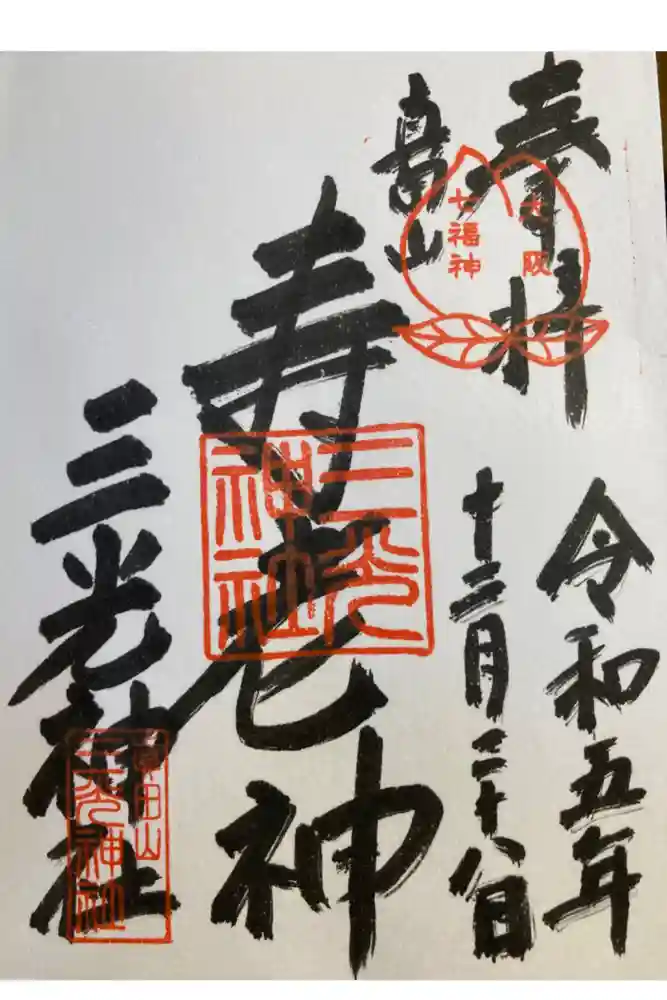 奉拝
真田山
大阪
七福神
令和五年
十二月二十八日
寿老神
三光
神社
三光神社
真田山
三光神社